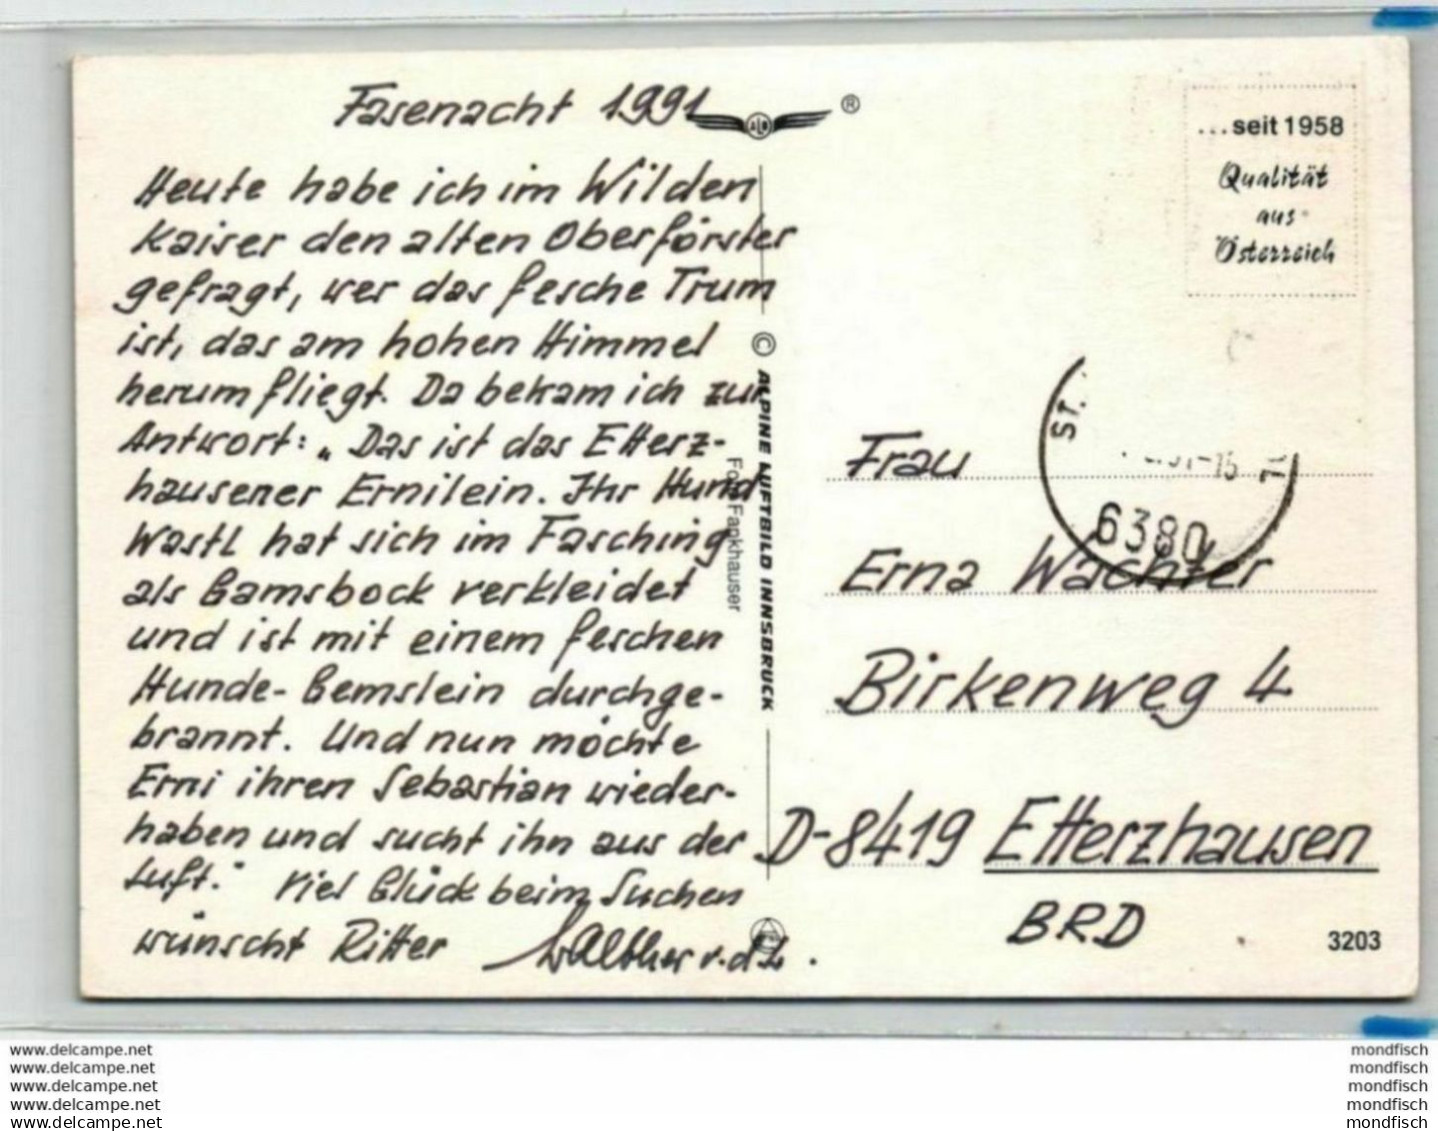 Fasenacht 1991
Heute habe ich im Wilden
Kaiser den alten Oberförster
gefragt, wer das fesche Trum
ist, das am hohen Himmel
herumfliegt. Da bekam ich zur
Antwort: „Das ist das Etterz-
hausener Ernilein. Ihr Hund
Wastl hat sich im Fasching
als Gamsbock verkleidet
und ist mit einem feschen
Hunde-Gemslein durchge-
brannt. Und nun möchte
Erni ihren Sebastian wieder-
haben und sucht ihn aus der
Luft." Viel Glück beim Suchen
wünscht Ritter Walther v. d.
ALO ®
© ALPINE LUFTBILD INNSBRUCK
Foto Fankhauser
...seit 1958
Qualität
aus
Österreich
ST.
6380
Frau
Erna Wachter
Birkenweg 4
D-8419 Etterzhausen
BRD
3203
www.delcampe.net
www.delcampe.net
www.delcampe.net
www.delcampe.net
www.delcampe.net
mondfisch
mondfisch
mondfisch
mondfisch
mondfisch